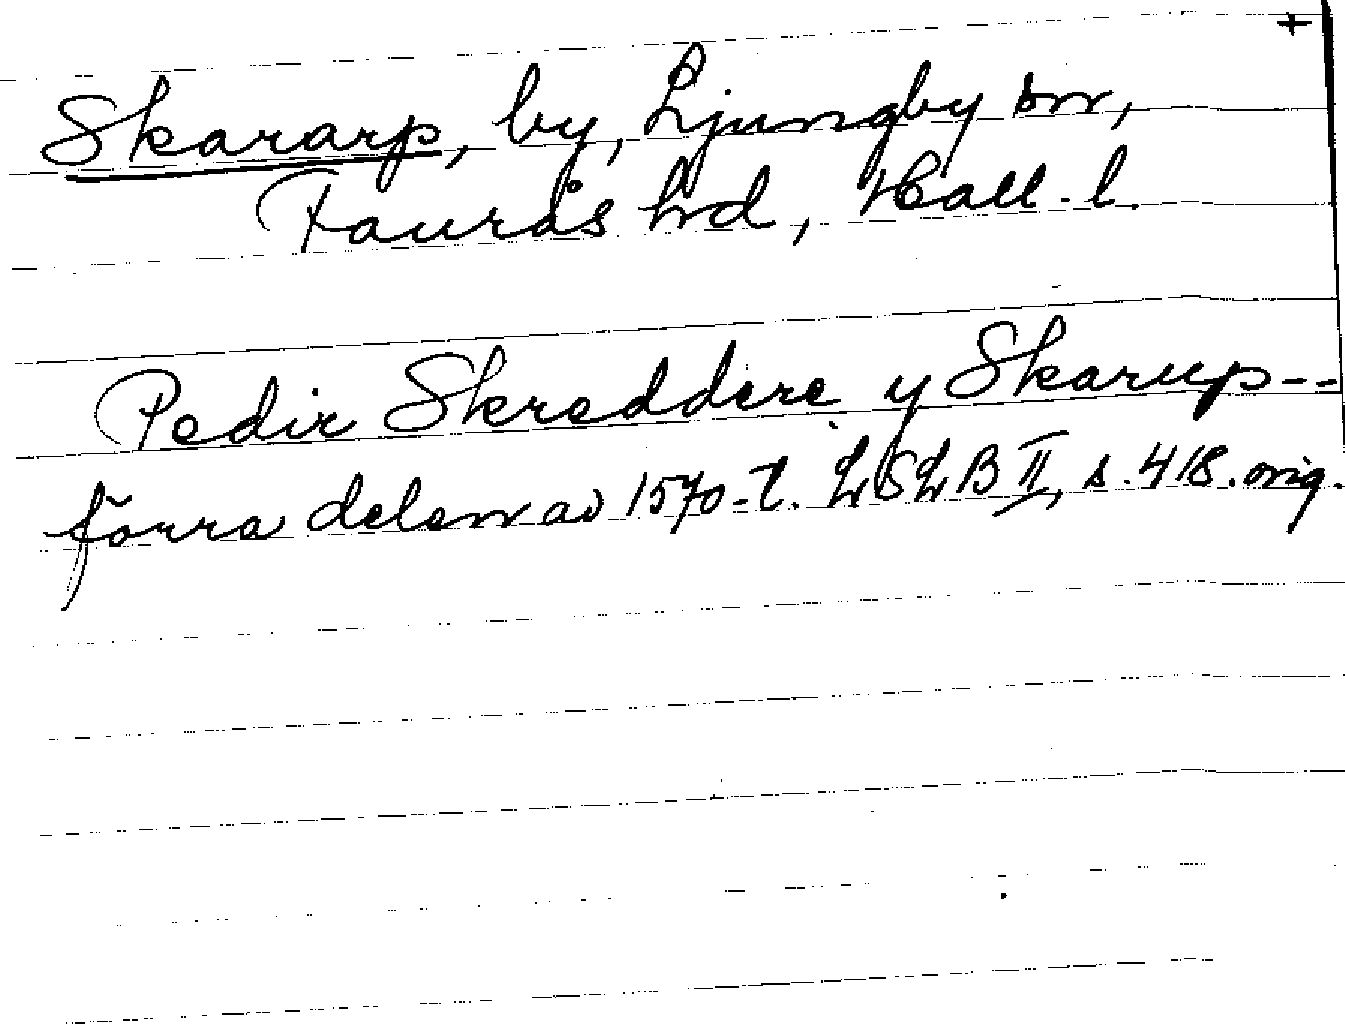 +
Skararp, by, Ljungby sn,
Faurås hd, Hall. l.
Pedir Skreddere y Skarup--
förra delen av 1570-t. LSLB II, s. 418. orig.